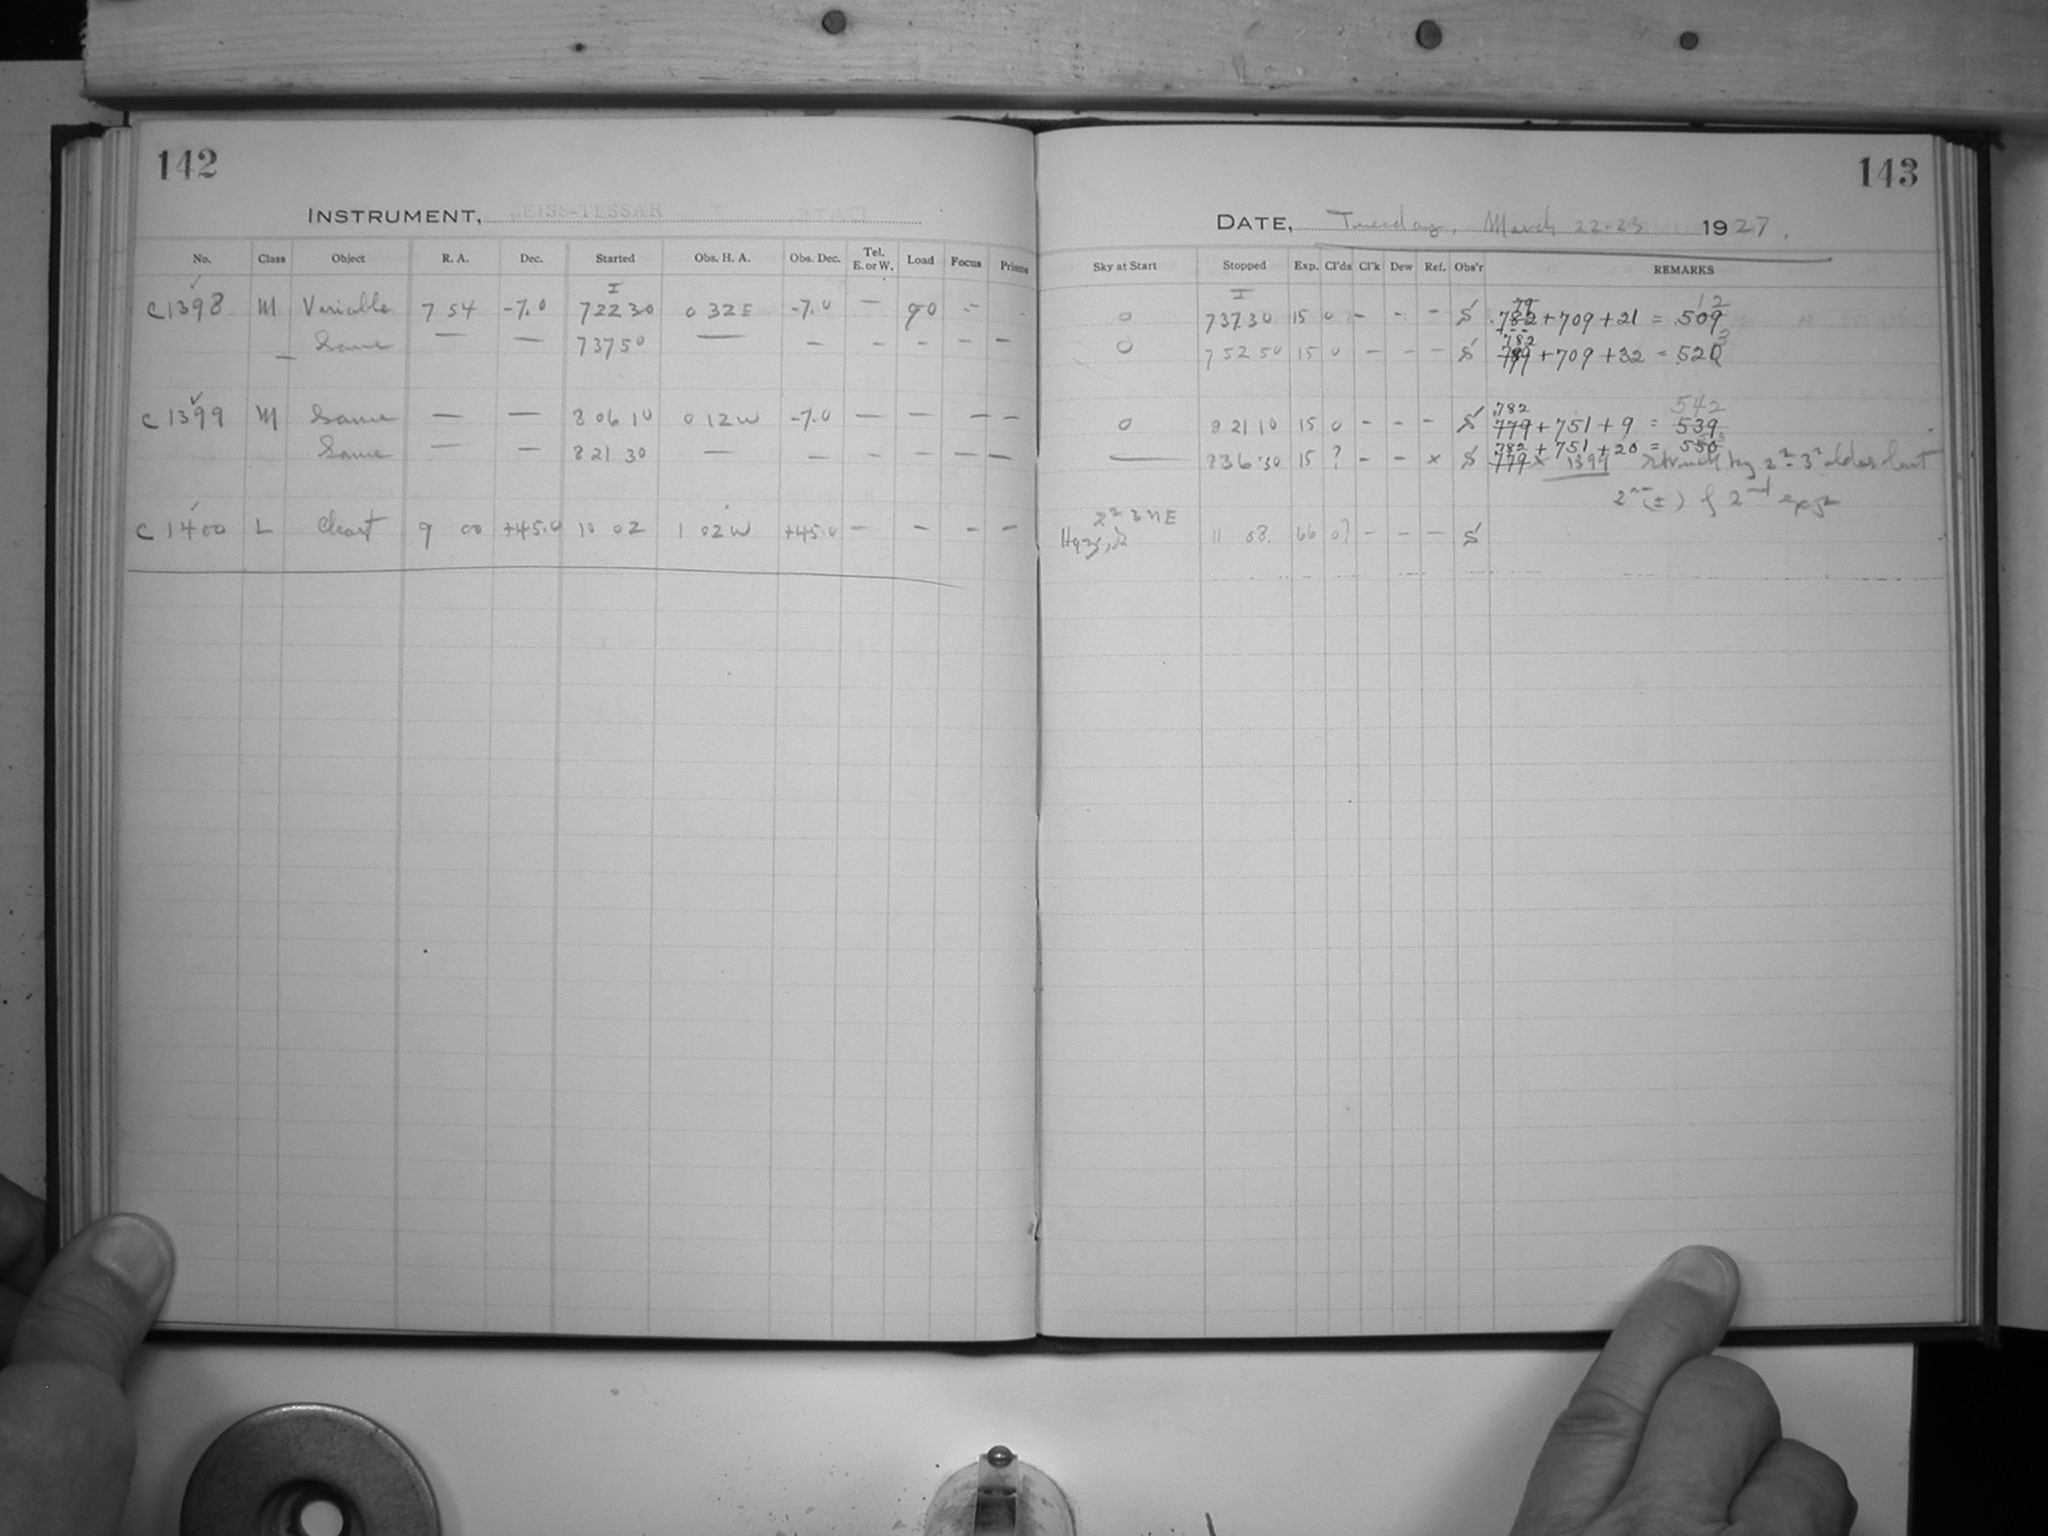 142
INSTRUMENT, ZEISS-TESSAR
No. Class Object R. A. Dec. Started Obs. H. A. Obs. Dec. Tel. E. or W. Load Focus Prisms
I
C1398 M Variable 7 54 -7.0 7 22 30 0 32 E -7.0 — 90 — -
— Same — — 7 37 50 — — — — — —
C1399 M Same — — 8 06 10 0 12 W -7.0 — — — —
Same — — 8 21 30 — — — — — —
C1400 L Chart 9 00 +45.0 10 02 1 02 W +45.0 — — — —
143
DATE, Tuesday, March 22-23 1927.
Sky at Start Stopped Exp. Cl'ds Cl'k Dew Ref. Obs'r REMARKS
I
0 7 37 30 15 0 - - - S .782 + 709 + 21 = .509
12
782 3
0 7 52 50 15 0 — — — S 779 + 709 + 32 = 520
.782 542
0 8 21 10 15 0 - - - S 779 + 751 + 9 = 539
782 + 751 + 20 = 550
— 8 36 30 15 ? - - x S 779 x 1399 struck by last
2nd
Hazy, 11 08. 66 0? - - - S